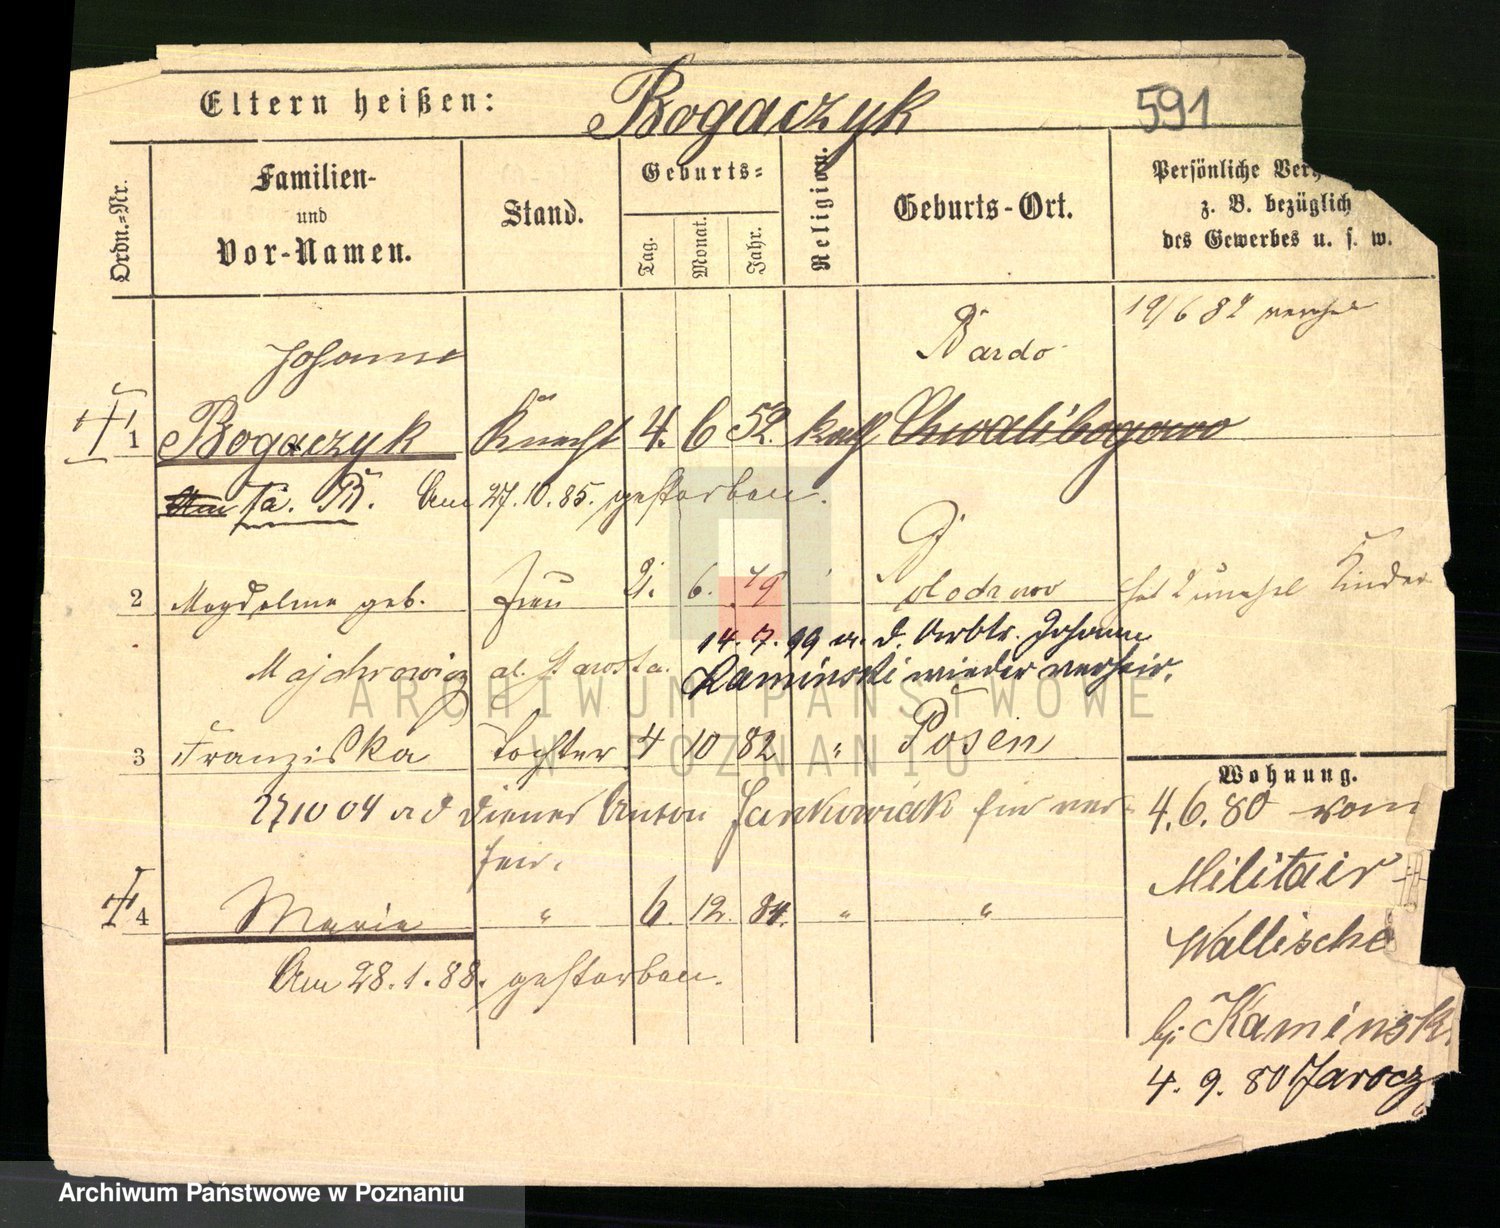 Eltern heißen: Bogaczyk 591
Ordn.-Nr.
Familien-
und
Vor-Namen.
Stand.
Geburts-
Tag. Monat. Jahr.
Religion.
Geburts-Ort.
Persönliche
z. B. bezüglich
des Gewerbes u. s. w.
19/6 82
Johann
Bardo
1 Bogaczyk Knecht 4. 6 52. kath Chwalibogowo
Am 27.10.85. gestorben.
2 Magdalena geb. Frau 2. 6. 49 hat Kinder
14. 7. 99 m. d. Arbtr. Johann
Majchrowicz al. Starosta.
Kaminski wieder verheir.
3 Franziska Tochter 4 10 82 " Posen
27 10 04 m d Diener Anton Jankowiak hier ver-
heir.
4 Marie " 6. 12. 84. " "
Am 28.1.88. gestorben.
Wohnung.
4.6.80 vom
Militair
Wallische
bei Kaminsk
4. 9. 80 Jarocz
ARCHIWUM PAŃSTWOWE
W POZNANIU
Archiwum Państwowe w Poznaniu